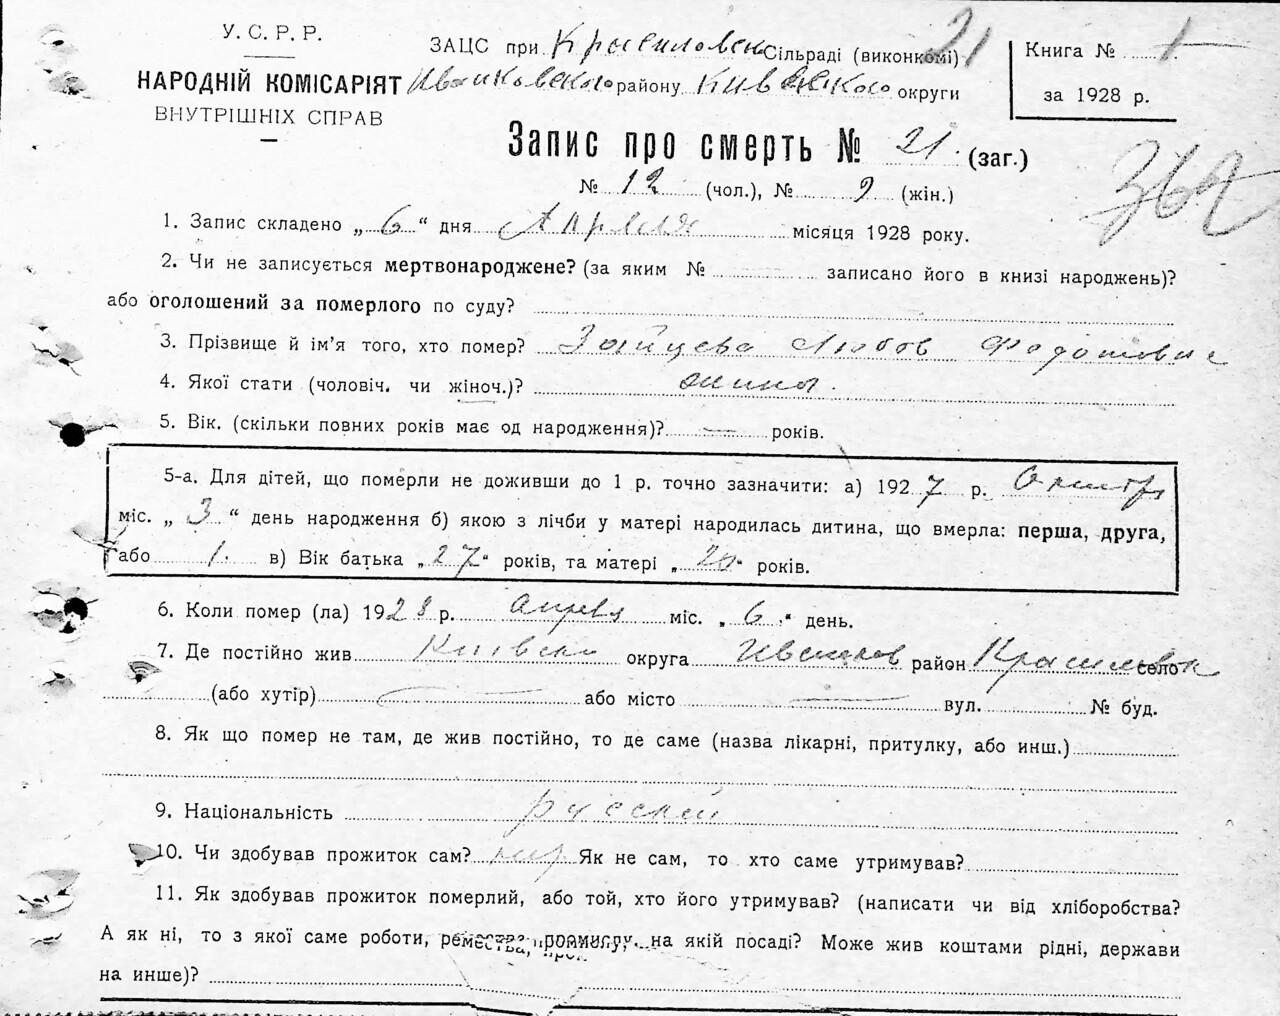 У. С. Р. Р.
НАРОДНІЙ КОМІСАРІЯТ
ВНУТРІШНІХ СПРАВ
ЗАЦС при Красиловск Сільраді (виконкомі) 21
Иванковского району Киевского округи
Книга № 1
за 1928 р.
Запис про смерть № 21. (заг.)
№ 12 (чол.), № 9 (жін.)
362
1. Запис складено „ 6 “ дня Апреля місяця 1928 року.
2. Чи не записується мертвонароджене? (за яким № записано його в книзі народжень)?
або оголошений за померлого по суду?
3. Прізвище й ім'я того, хто помер? Зайцева Любов Федотовна
4. Якої стати (чоловіч. чи жіноч.)?
5. Вік. (скільки повних років має од народження)? — років.
5-а. Для дітей, що померли не доживши до 1 р. точно зазначити: а) 1927 р. Октябр
міс. „ 3 “ день народження б) якою з лічби у матері народилась дитина, що вмерла: перша, друга,
або 1. в) Вік батька „ 27 “ років, та матері „ 20 “ років.
6. Коли помер (ла) 1928 р. апреля міс. „ 6 “ день.
7. Де постійно жив Киевски округа Иванков район Красиловк село
(або хутір) — або місто — вул. № буд.
8. Як що помер не там, де жив постійно, то де саме (назва лікарні, притулку, або инш.)
9. Національність русский
10. Чи здобував прожиток сам? Як не сам, то хто саме утримував?
11. Як здобував прожиток померлий, або той, хто його утримував? (написати чи від хліборобства?
А як ні, то з якої саме роботи, ремества, промислу, на якій посаді? Може жив коштами рідні, держави
на инше)?